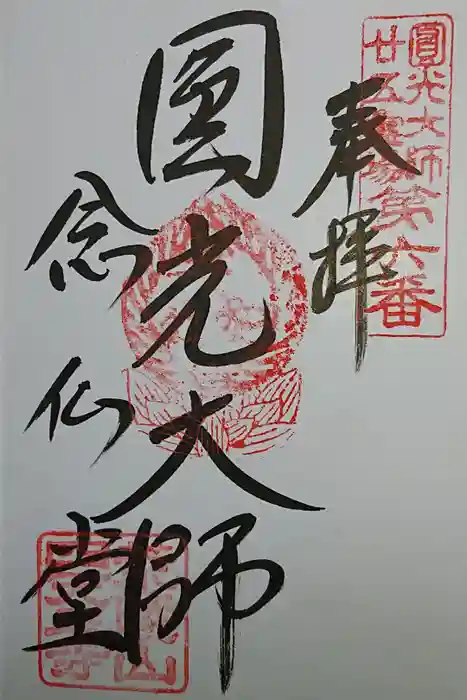 圓光大師
廿五霊場第六番
奉拝
圓光大師
念仏堂